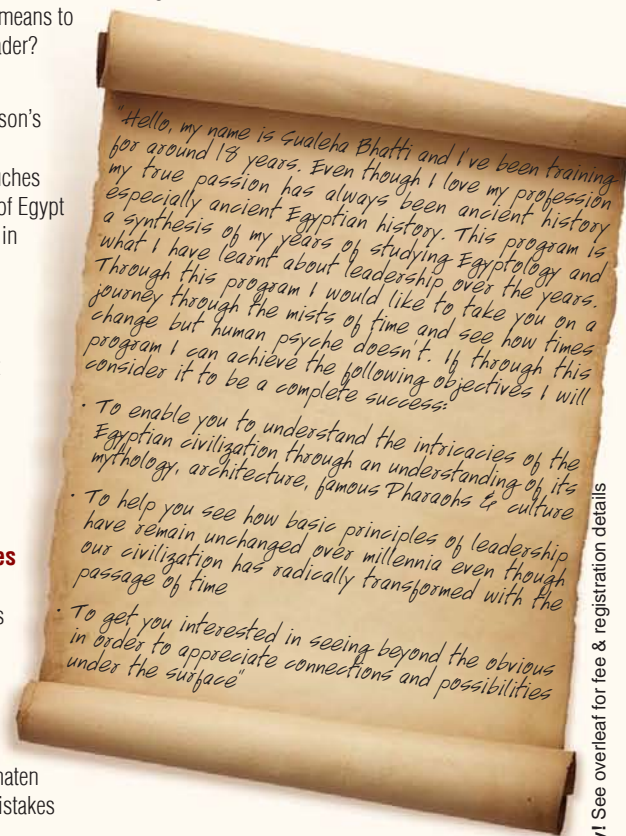 means to
ader?
son's
uches
of Egypt
in
es
s
naten
istakes
"Hello, my name is Sualeha Bhatti and I've been training
for around 18 years. Even though I love my profession
my true passion has always been ancient history
especially ancient Egyptian history. This program is
a synthesis of my years of studying Egyptology and
what I have learnt about leadership over the years.
Through this program I would like to take you on a
journey through the mists of time and see how times
change but human psyche doesn't. If through this
program I can achieve the following objectives I will
consider it to be a complete success:
• To enable you to understand the intricacies of the
Egyptian civilization through an understanding of its
mythology, architecture, famous Pharaohs & culture
• To help you see how basic principles of leadership
have remain unchanged over millennia even though
our civilization has radically transformed with the
passage of time
• To get you interested in seeing beyond the obvious
in order to appreciate connections and possibilities
under the surface"
y! See overleaf for fee & registration details